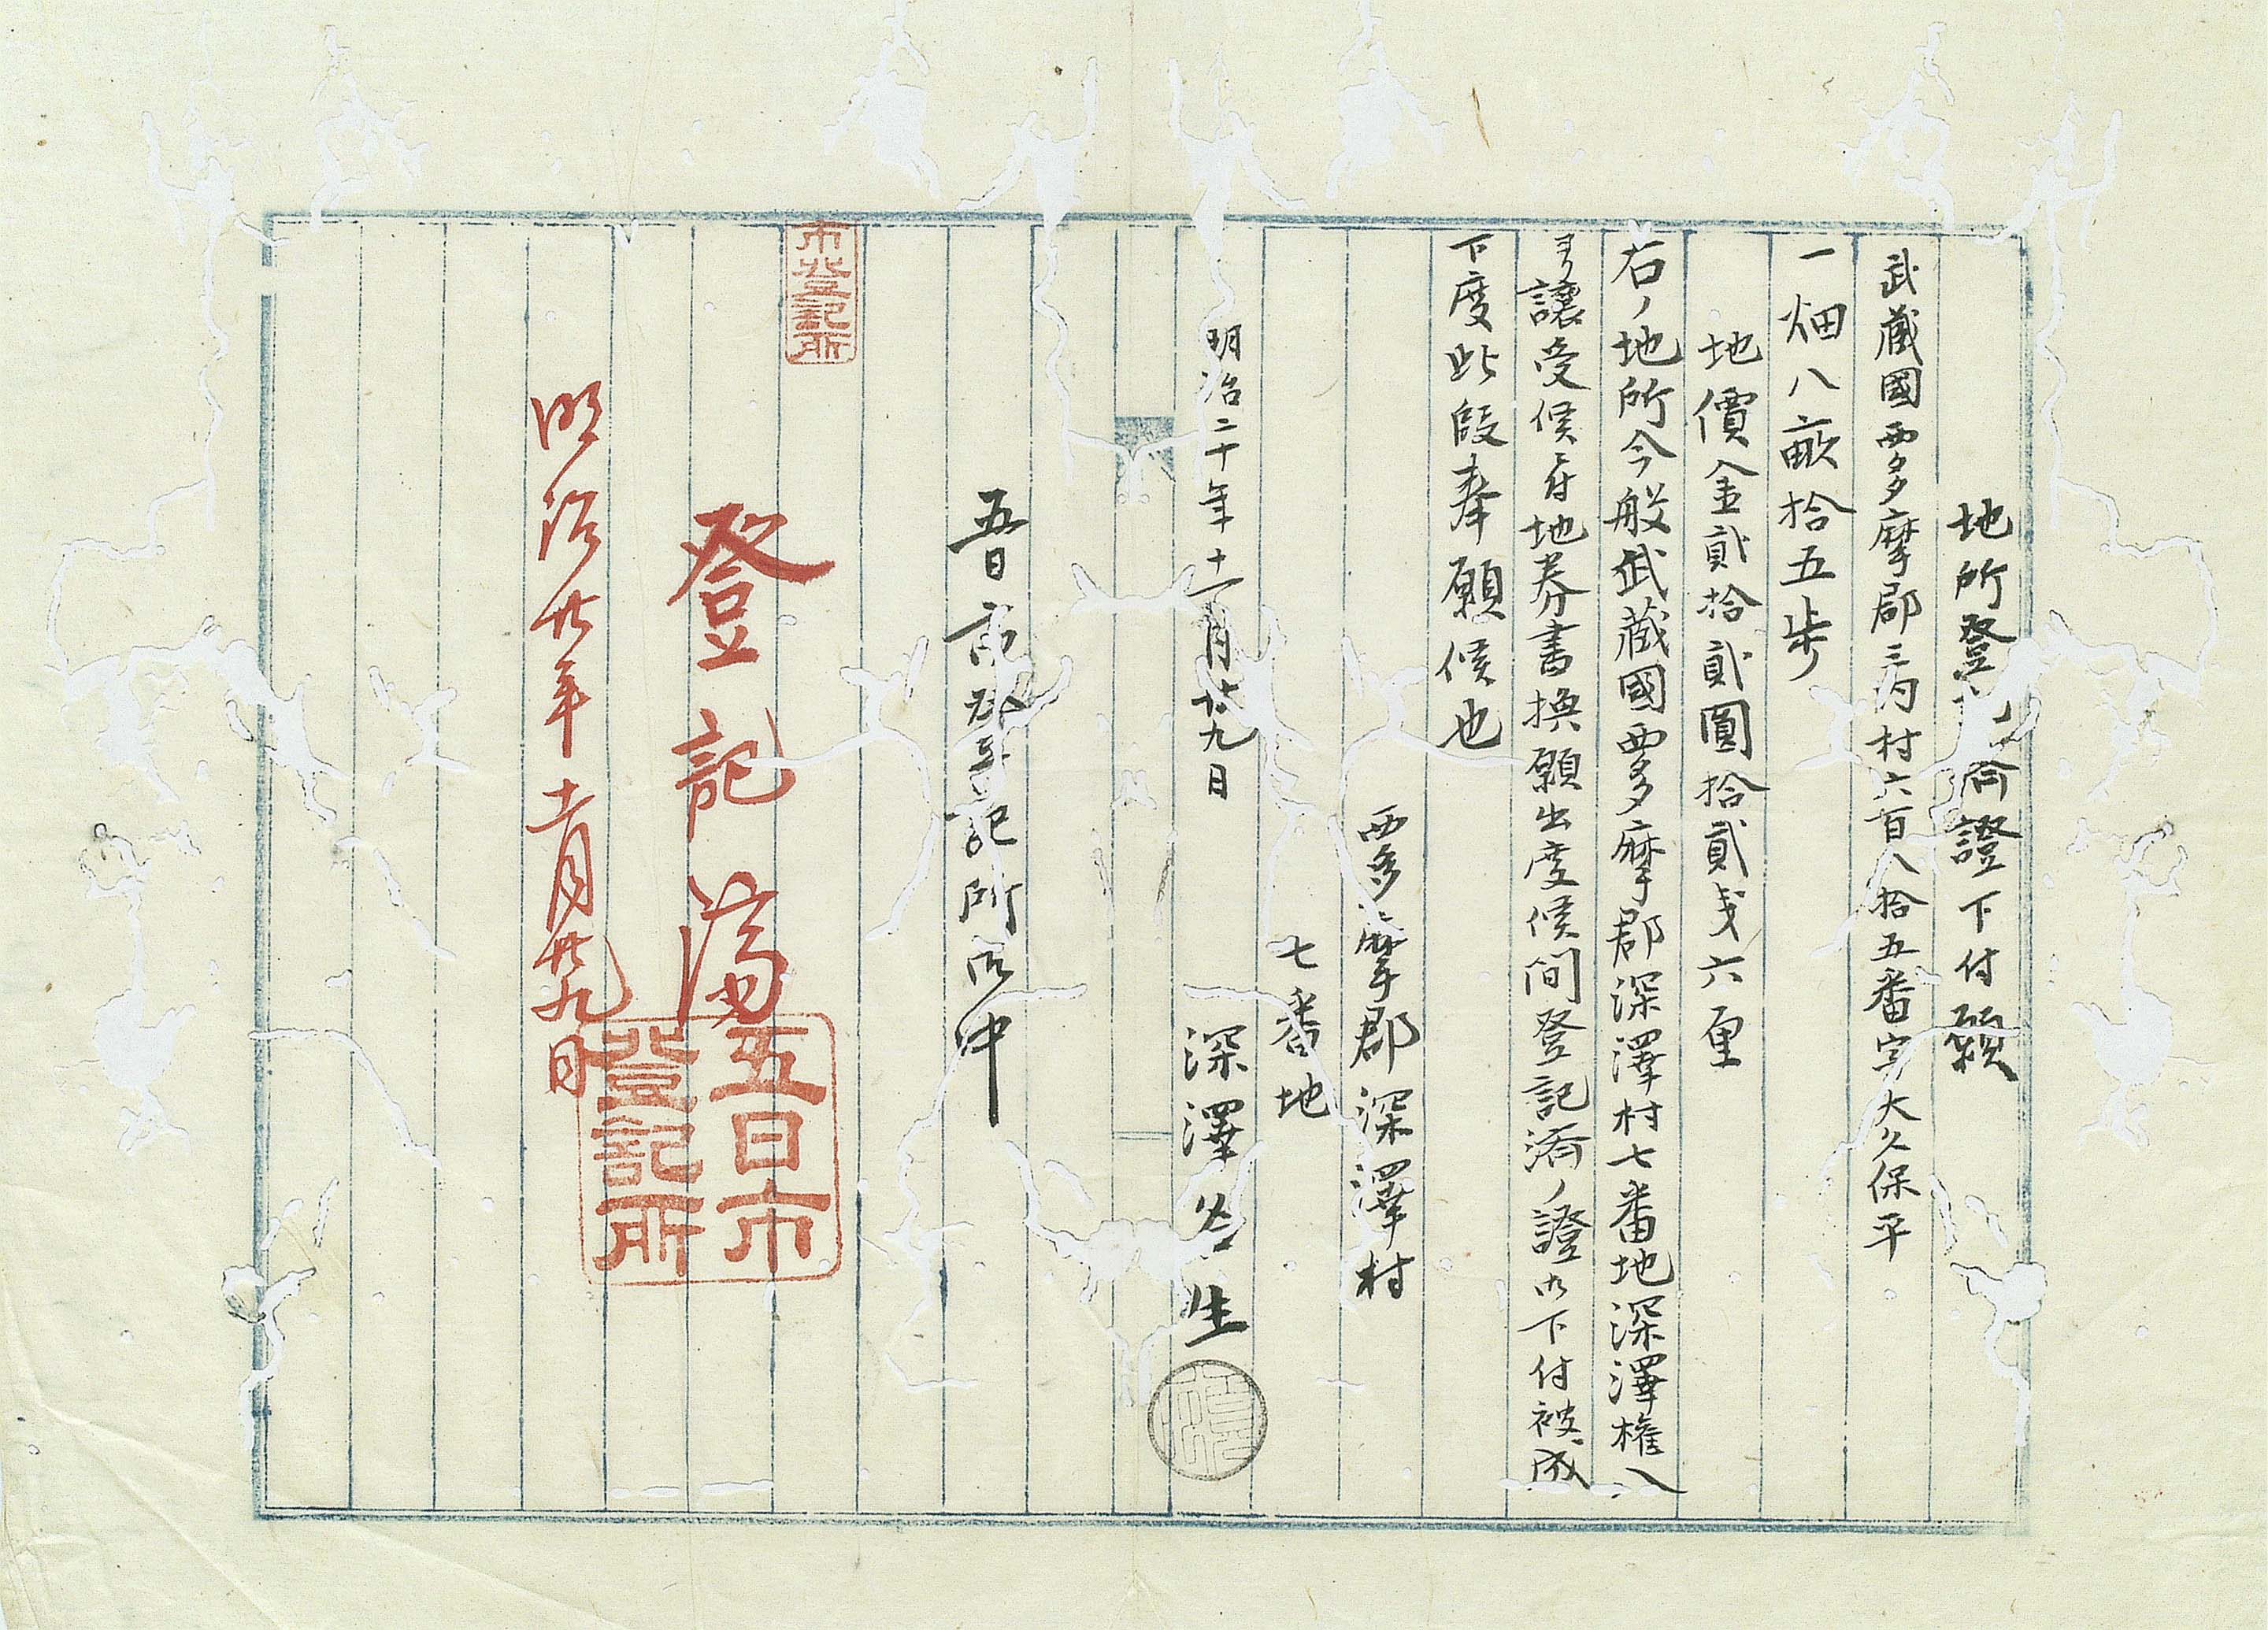 地所登記済證下付願
武藏國西多摩郡三内村六百八拾五番字大久保平
一畑八畝拾五歩
地價金貳拾貳圓拾貳戔六厘
右ノ地所今般武藏國西多摩郡深澤村七番地深澤権八
ヨリ譲受候ニ付地券書換願出度候間登記済ノ證御下付被成
下度此段奉願候也
西多摩郡深澤村
七番地
明治二十年十一月廿九日
深澤名生
五日市登記所御中
市登記所
登記済
明治廿年十一月廿九日
五日市
登記所